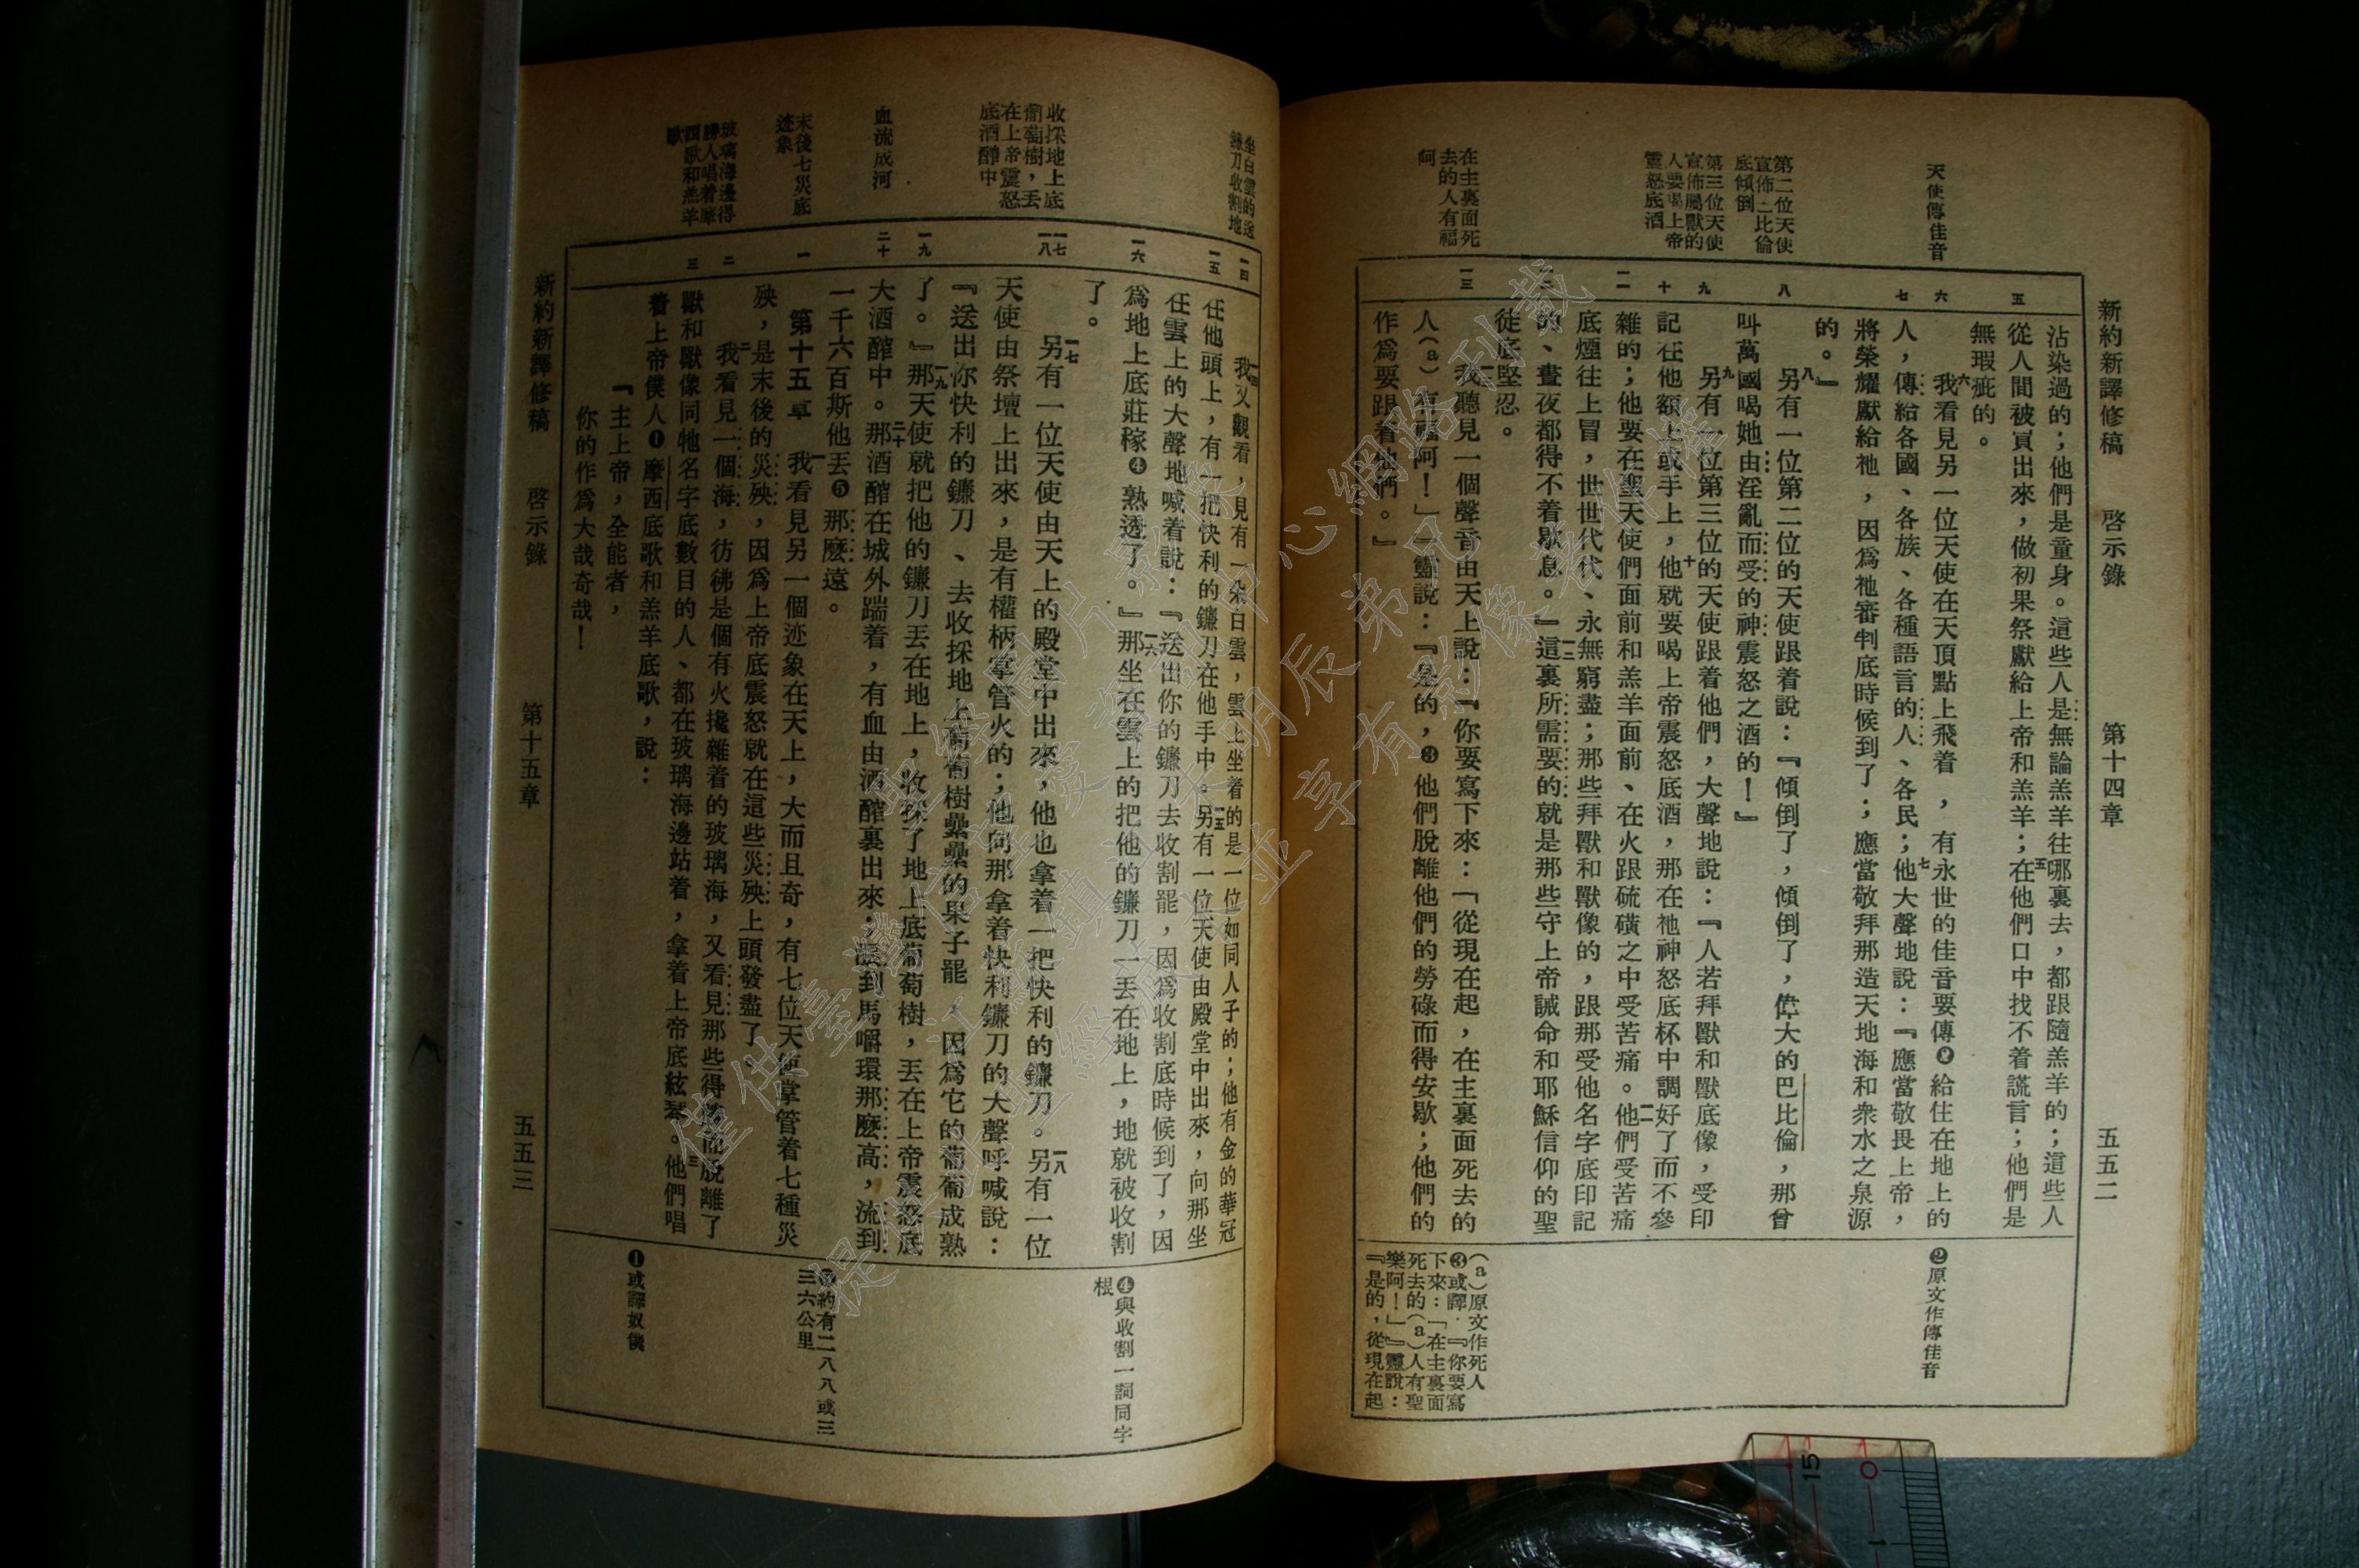 新約新譯修稿　啓示錄　第十四章　五五二
天使傳佳音
第二位天使
宣佈巴比倫
底傾倒
第三位天使
宣佈屬獸的
人要喝上帝
震怒底酒
在主裏面死
去的人有福
阿
五
六
七
八
九
十
一一
一三
沾染過的；他們是童身。這些人是無論羔羊往哪裏去，都跟隨羔羊的；這些人
從人間被買出來，做初果祭獻給上帝和羔羊；五在他們口中找不着謊言；他們是
無瑕疵的。
六我看見另一位天使在天頂點上飛着，有永世的佳音要傳❷給住在地上的
人，傳給各國、各族、各種語言的人、各民；七他大聲地說：『應當敬畏上帝，
將榮耀獻給祂，因爲祂審判底時候到了；應當敬拜那造天地海和衆水之泉源
的。』
八另有一位第二位的天使跟着說：『傾倒了，傾倒了，偉大的巴比倫，那曾
叫萬國喝她由淫亂而受的神震怒之酒的！』
九另有一位第三位的天使跟着他們，大聲地說：『人若拜獸和獸底像，受印
記在他額上或手上，十他就要喝上帝震怒底酒，那在祂神怒底杯中調好了而不參
雜的；他要在聖天使們面前和羔羊面前、在火跟硫磺之中受苦痛。一一他們受苦痛
底煙往上冒，世世代代、永無窮盡；那些拜獸和獸像的，跟那受他名字底印記
的、晝夜都得不着歇息。』一二這裏所需要的就是那些守上帝誡命和耶穌信仰的聖
徒底堅忍。
一三我聽見一個聲音由天上說：『你要寫下來：「從現在起，在主裏面死去的
人(a)有福阿！」』靈說：『是的，❸他們脫離他們的勞碌而得安歇；他們的
作爲要跟着他們。』
❷原文作傳佳音
(a)原文作死人
❸或譯：『你要寫
下來：「在主裏面
死去的(a)人有聖
樂阿！」』靈說：
『是的，從現在起
坐白雲的送
鐮刀收割地
收採地上底
葡萄樹，丟
在上帝震怒
底酒醡中
血流成河
末後七災底
迹象
玻璃海邊得
勝人唱着摩
西歌和羔羊
歌
一四
一五
一六
一七
一八
一九
二十
一
二
三
一四我又觀看，見有一朵白雲，雲上坐着的是一位如同人子的；他有金的華冠
在他頭上，有一把快利的鐮刀在他手中。一五另有一位天使由殿堂中出來，向那坐
在雲上的大聲地喊着說：『送出你的鐮刀去收割罷，因爲收割底時候到了，因
爲地上底莊稼❹熟透了。』一六那坐在雲上的把他的鐮刀一丟在地上，地就被收割
了。
一七另有一位天使由天上的殿堂中出來，他也拿着一把快利的鐮刀。一八另有一位
天使由祭壇上出來，是有權柄掌管火的；他向那拿着快利鐮刀的大聲呼喊說：
『送出你快利的鐮刀、去收採地上葡萄樹纍纍的果子罷，因爲它的葡萄成熟
了。』一九那天使就把他的鐮刀丟在地上，收採了地上底葡萄樹，丟在上帝震怒底
大酒醡中。二十那酒醡在城外踹着，有血由酒醡裏出來；漲到馬嚼環那麽高，流到
一千六百斯他丟❺那麽遠。
第十五章　一我看見另一個迹象在天上，大而且奇，有七位天使掌管着七種災
殃，是末後的災殃，因爲上帝底震怒就在這些災殃上頭發盡了。
二我看見一個海，彷彿是個有火攙雜着的玻璃海，又看見那些得勝而脫離了
獸和獸像同牠名字底數目的人、都在玻璃海邊站着，拿着上帝底絃琴。三他們唱
着上帝僕人❶摩西底歌和羔羊底歌，說：
『主上帝，全能者，
你的作爲大哉奇哉！
❹與收割一詞同字
根
❺約有二八八或三
三六公里
❶或譯奴僕
新約新譯修稿　啓示錄　第十五章　五五三
僅供臺灣信望愛資訊中心網路刊載